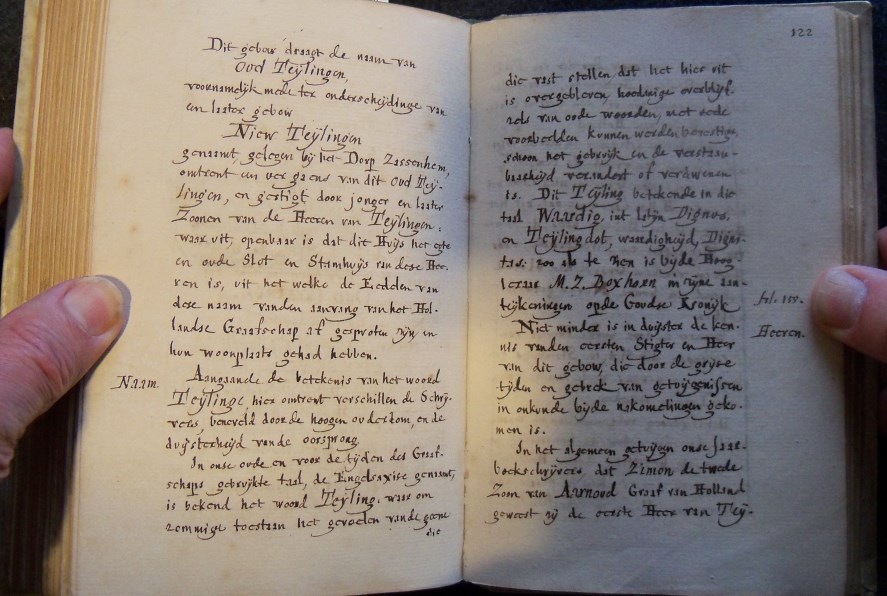 Dit gebow draagt de naam van
Oud Teylingen,
voornamelijk mede ter onderscheijdinge van
een laater gebow
Niew Teylingen
genaamt, gelegen bij het Dorp Zassenhem,
omtrent een vergaens van dit Oud Tey-
lingen, en gestigt door jonger en laater
Zoonen van de Heeren van Teylingen,
waar uit, openbaar is dat dit Huijs het egte
en oude Slot en Stamhuijs van dese Hee-
ren is, uit het welke de Eedelen van
dese naam vanden aanvang van het Hol-
landse Graafschap af gesproten zijn en
hun woonplaats gehad hebben.
Naam.
Aangaande de betekenis van het woord
Teylinge hier omtrent verschillen de Schrij-
vers, beneveld door de hoogen ouderdom, en de
duijsterheijd van de oorsprong.
In onse oude en voor de tijden des Graaf-
schaps gebruikte taal, de Engelsaxise genaamt,
is bekend het woord Teyling, waar om
zommige toestaan het gevoelen van de geene
die
122
die vast stellen dat het hier uit
is overgebleven hoedanige overblijf-
zels van oude woorden, met rede
voorbeelden kunnen werden bevestigt,
schoon het gebruijk en de verstaan-
baarheijd verandert of verdwenen
is. Dit Teyling betekende in die
taal Waardig, int latijn Dignus,
en Teylingdot, waardigheijd, Digni-
tas: zoo als te zien is bij de Hoog-
leraar M. Z. Boxhorn in zijne aan-
teijkeningen op de Goudse Kronijk
fol. 155.
Niet minder is in duijster de ken-
Heeren.
nis vanden eersten Stigter en Heer
van dit gebow, die door de grijse
tijden en gebrek van getuijgenissen
in onkunde bij de nakomelingen geko-
men is.
In het algemeen getuijgen onse Jaar-
boekschrijvers, dat Zimon de twede
Zoon van Aarnoud Graaf van Holland
geweest zij de eerste Heer van Tey-